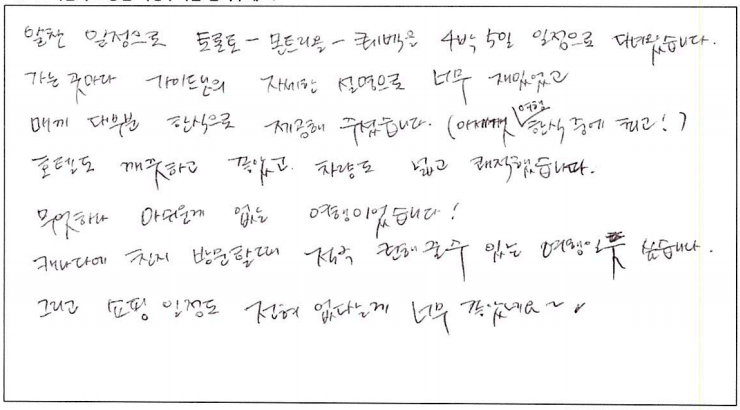 알찬 일정으로 토론토 - 몬트리올 - 퀘벡을 4박 5일 일정으로 다녀왔습니다.
가는 곳마다 가이드님의 자세한 설명으로 너무 재밌었고
매끼 대부분 한식으로 제공해 주셨습니다. (여태껏 여행 한식 중에 최고!)
호텔도 깨끗하고 좋았고 차량도 넓고 쾌적했습니다.
무엇하나 아쉬운게 없는 여행이었습니다!
캐나다에 친지 방문할때 적극 권해줄수 있는 여행일듯 싶습니다.
그리고 쇼핑 일정도 전혀 없다는게 너무 좋았네요~